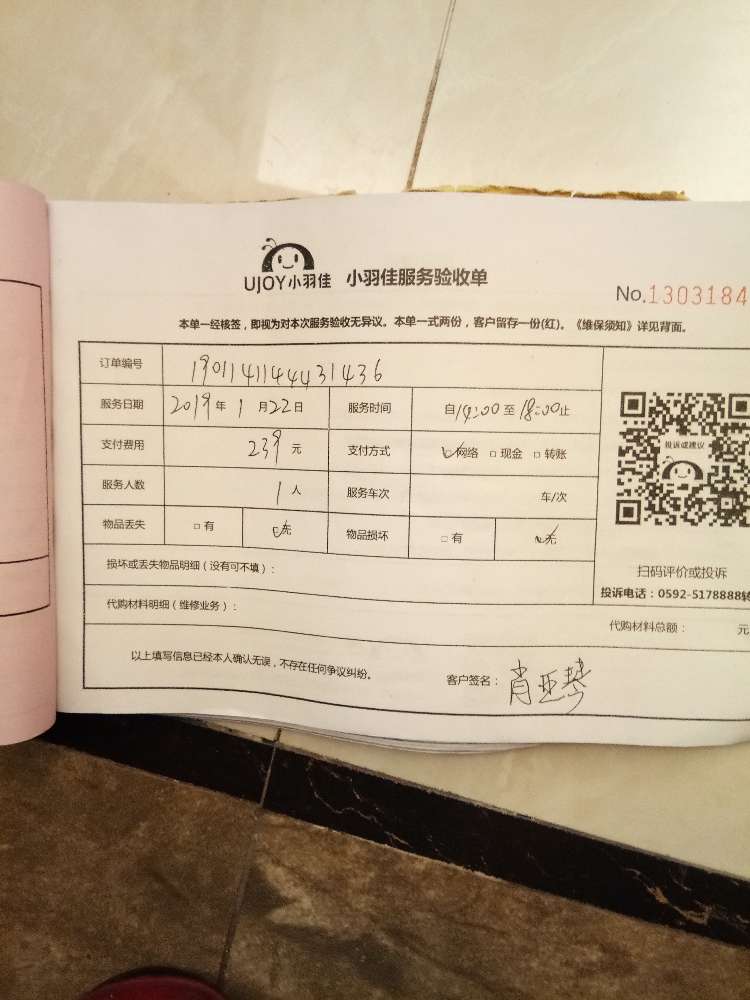 UJOY小羽佳 小羽佳服务验收单
No.1303184
本单一经核签，即视为对本次服务验收无异议。本单一式两份，客户留存一份(红)。《维保须知》详见背面。
订单编号 190114114431436
服务日期 2019年1月22日 服务时间 自14:00至18:00止
支付费用 239元 支付方式 ☑网络 □现金 □转账
投诉或建议
服务人数 1人 服务车次 车/次
物品丢失 □有 ☑无 物品损坏 □有 ☑无
损坏或丢失物品明细（没有可不填）：
扫码评价或投诉
投诉电话：0592-5178888转
代购材料明细（维修业务）：
代购材料总额： 元
以上填写信息已经本人确认无误，不存在任何争议纠纷。
客户签名：肖亚琴